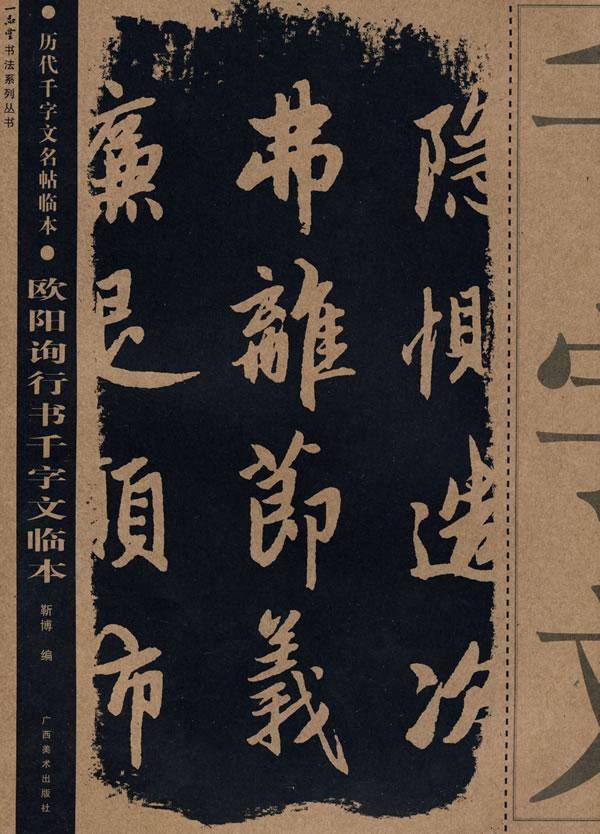 一品堂书法系列丛书
●历代千字文名帖临本●
欧阳询行书千字文临本
靳博 编
广西美术出版社
隐恻造次
弗離節義
廉退顛沛
千字文